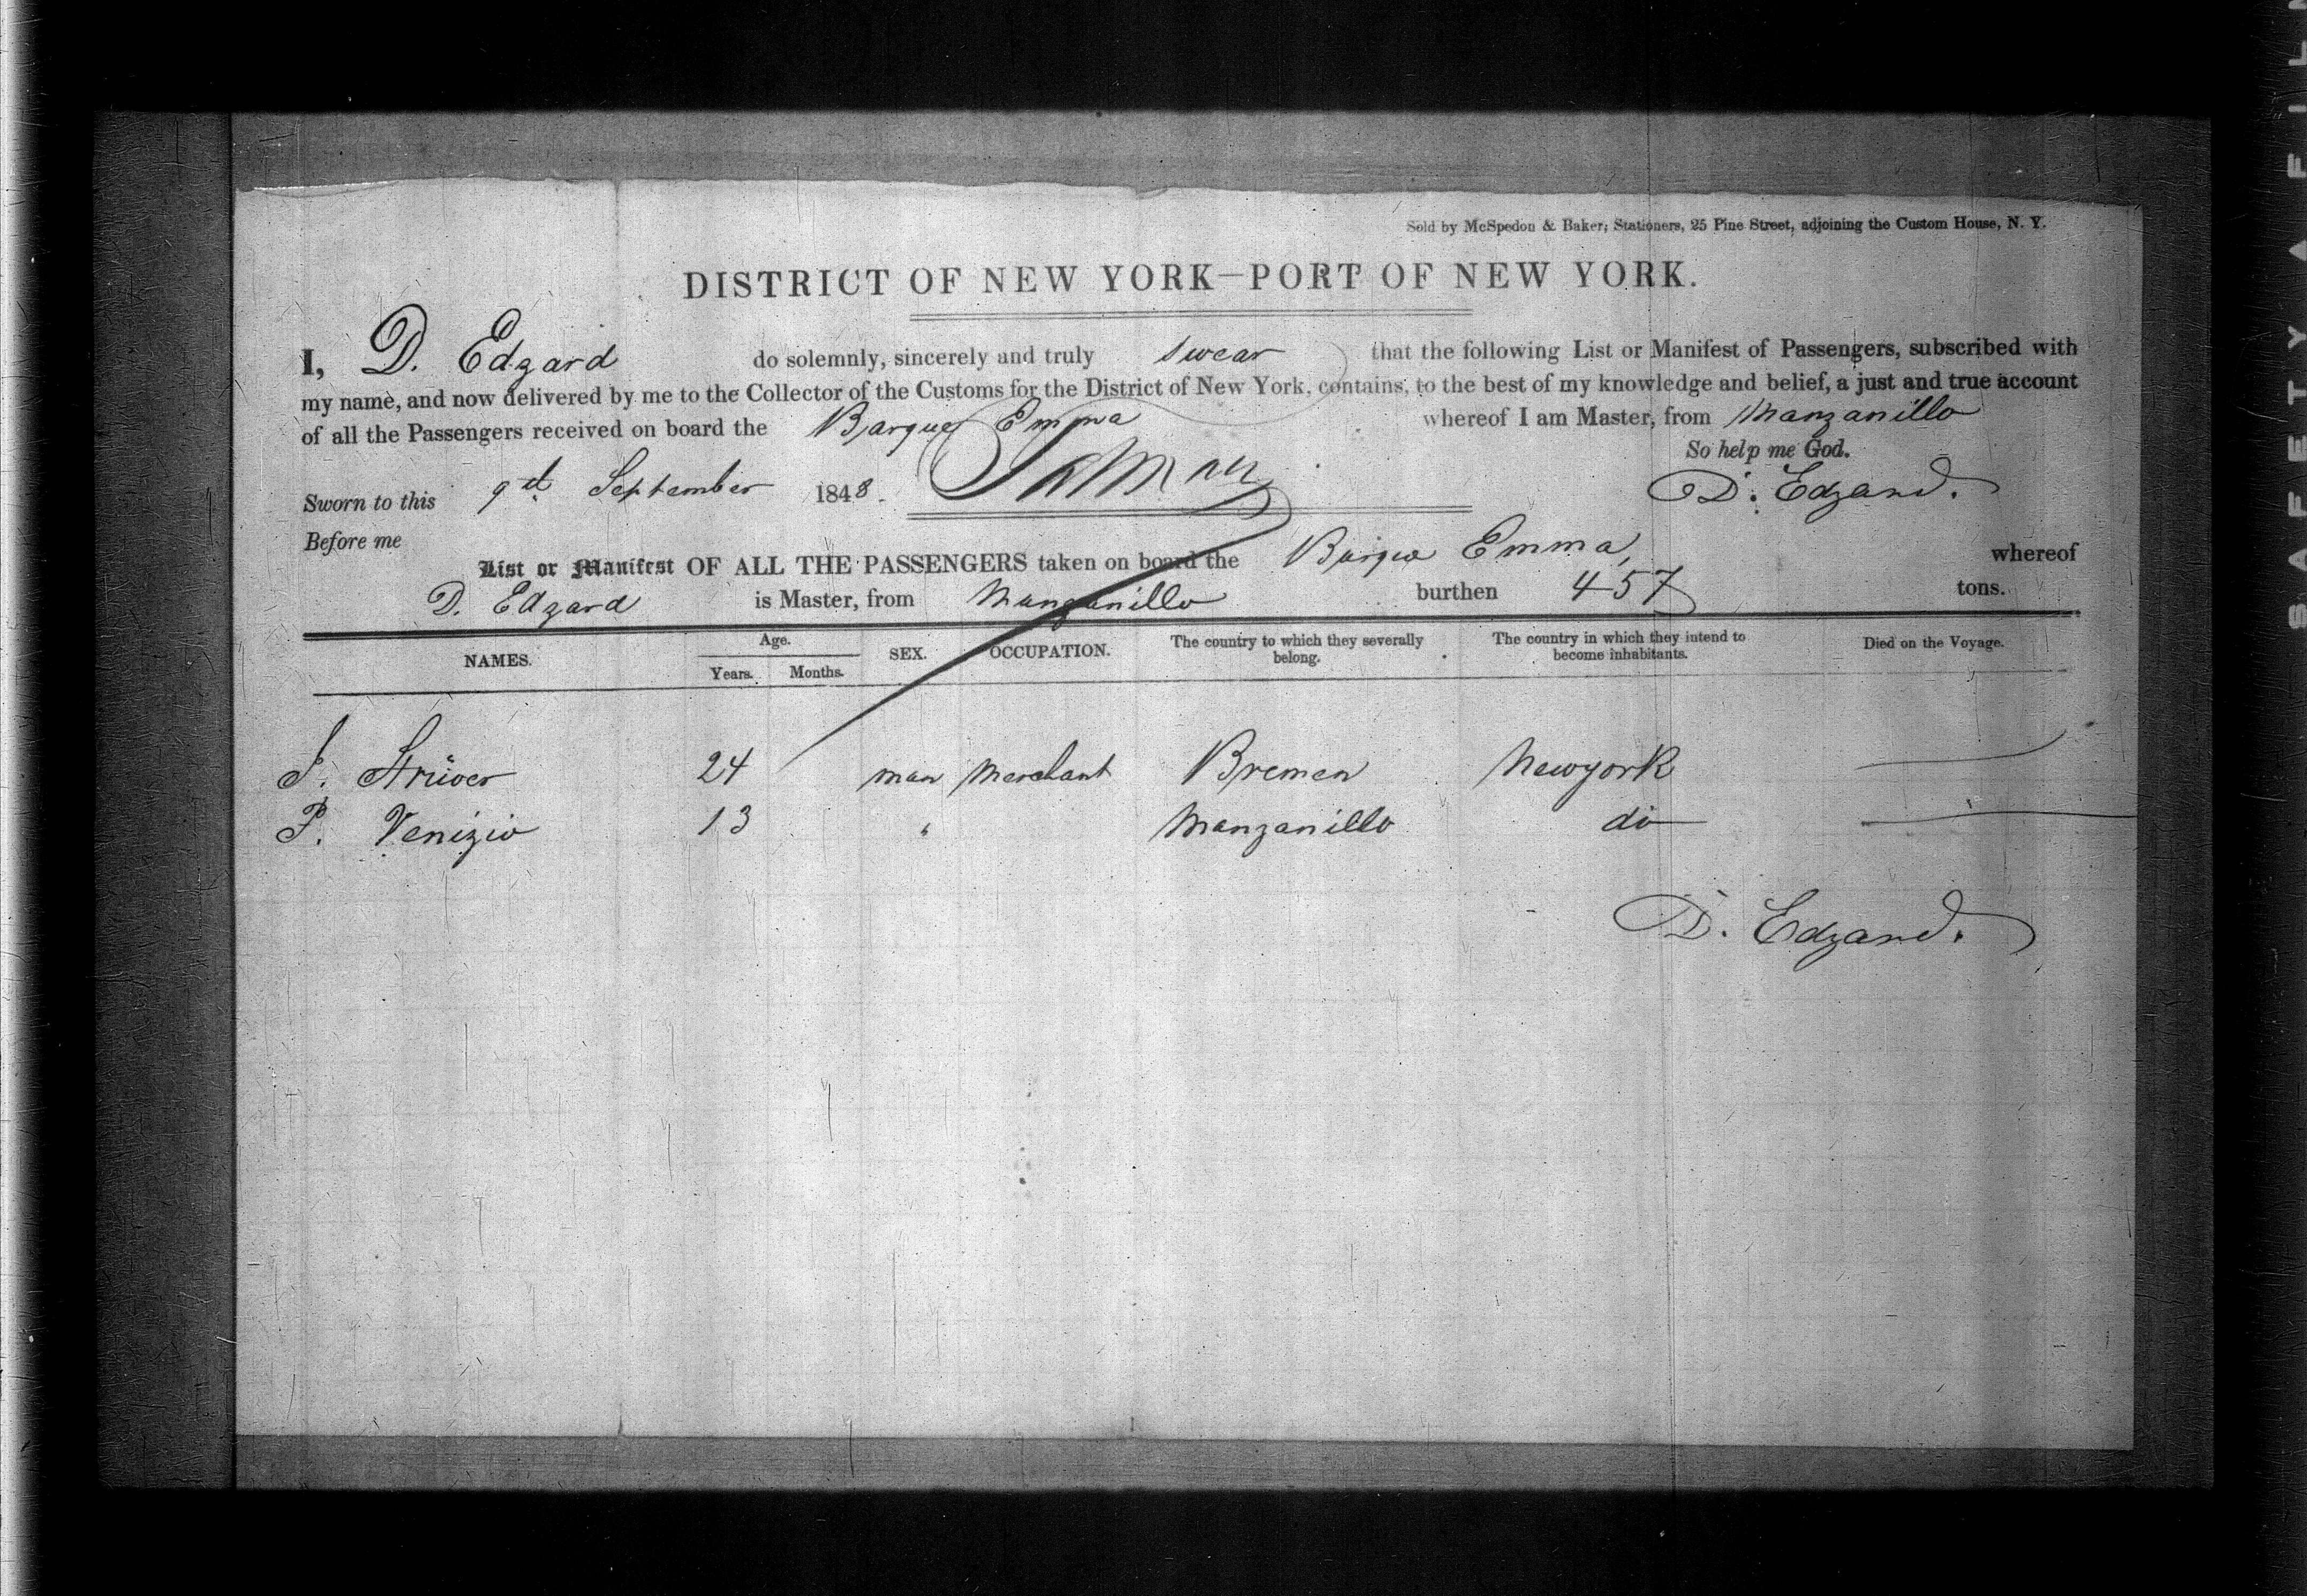 Sold by McSpedon & Baker; Stationers, 25 Pine Street, adjoining the Custom House, N. Y.
DISTRICT OF NEW YORK—PORT OF NEW YORK.
I, D. Edzard do solemnly, sincerely and truly swear that the following List or Manifest of Passengers, subscribed with
my name, and now delivered by me to the Collector of the Customs for the District of New York, contains, to the best of my knowledge and belief, a just and true account
of all the Passengers received on board the Barque Emma whereof I am Master, from Manzanillo
So help me God.
Sworn to this 9th September 1848. D. Edzard.
Before me
List or Manifest OF ALL THE PASSENGERS taken on board the Barque Emma, whereof
D. Edzard is Master, from Manzanillo burthen 457 tons.
NAMES. Age. Years. Months. SEX. OCCUPATION. The country to which they severally belong. The country in which they intend to become inhabitants. Died on the Voyage.
J. Strüver 24 man Merchant Bremen Newyork
P. Venizio 13 " Manzanillo do
D. Edzard.
SAFETY FILM